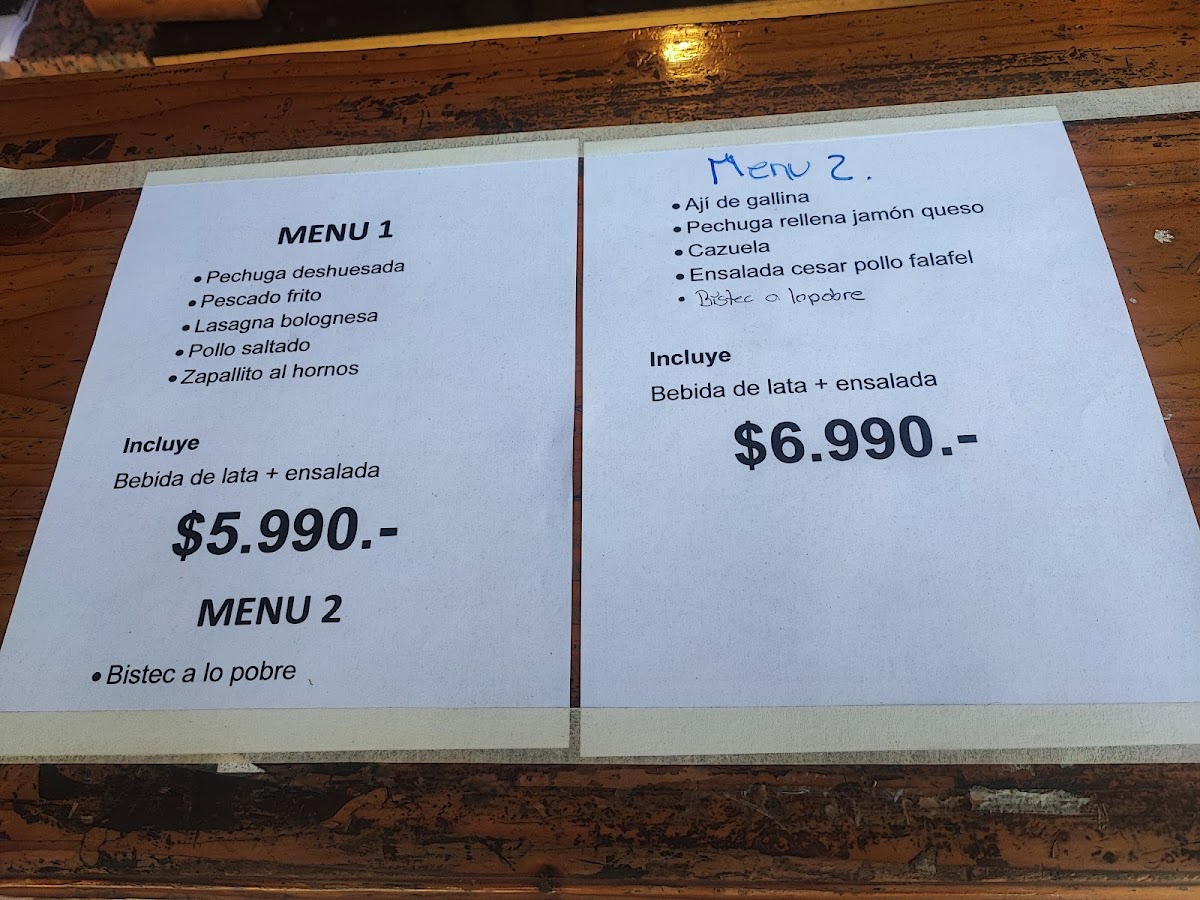 MENU 1
• Pechuga deshuesada
• Pescado frito
• Lasagna bolognesa
• Pollo saltado
• Zapallito al hornos
Incluye
Bebida de lata + ensalada
$5.990.-
MENU 2
• Bistec a lo pobre
Menu 2.
• Ají de gallina
• Pechuga rellena jamón queso
• Cazuela
• Ensalada cesar pollo falafel
• Bistec a lo pobre
Incluye
Bebida de lata + ensalada
$6.990.-